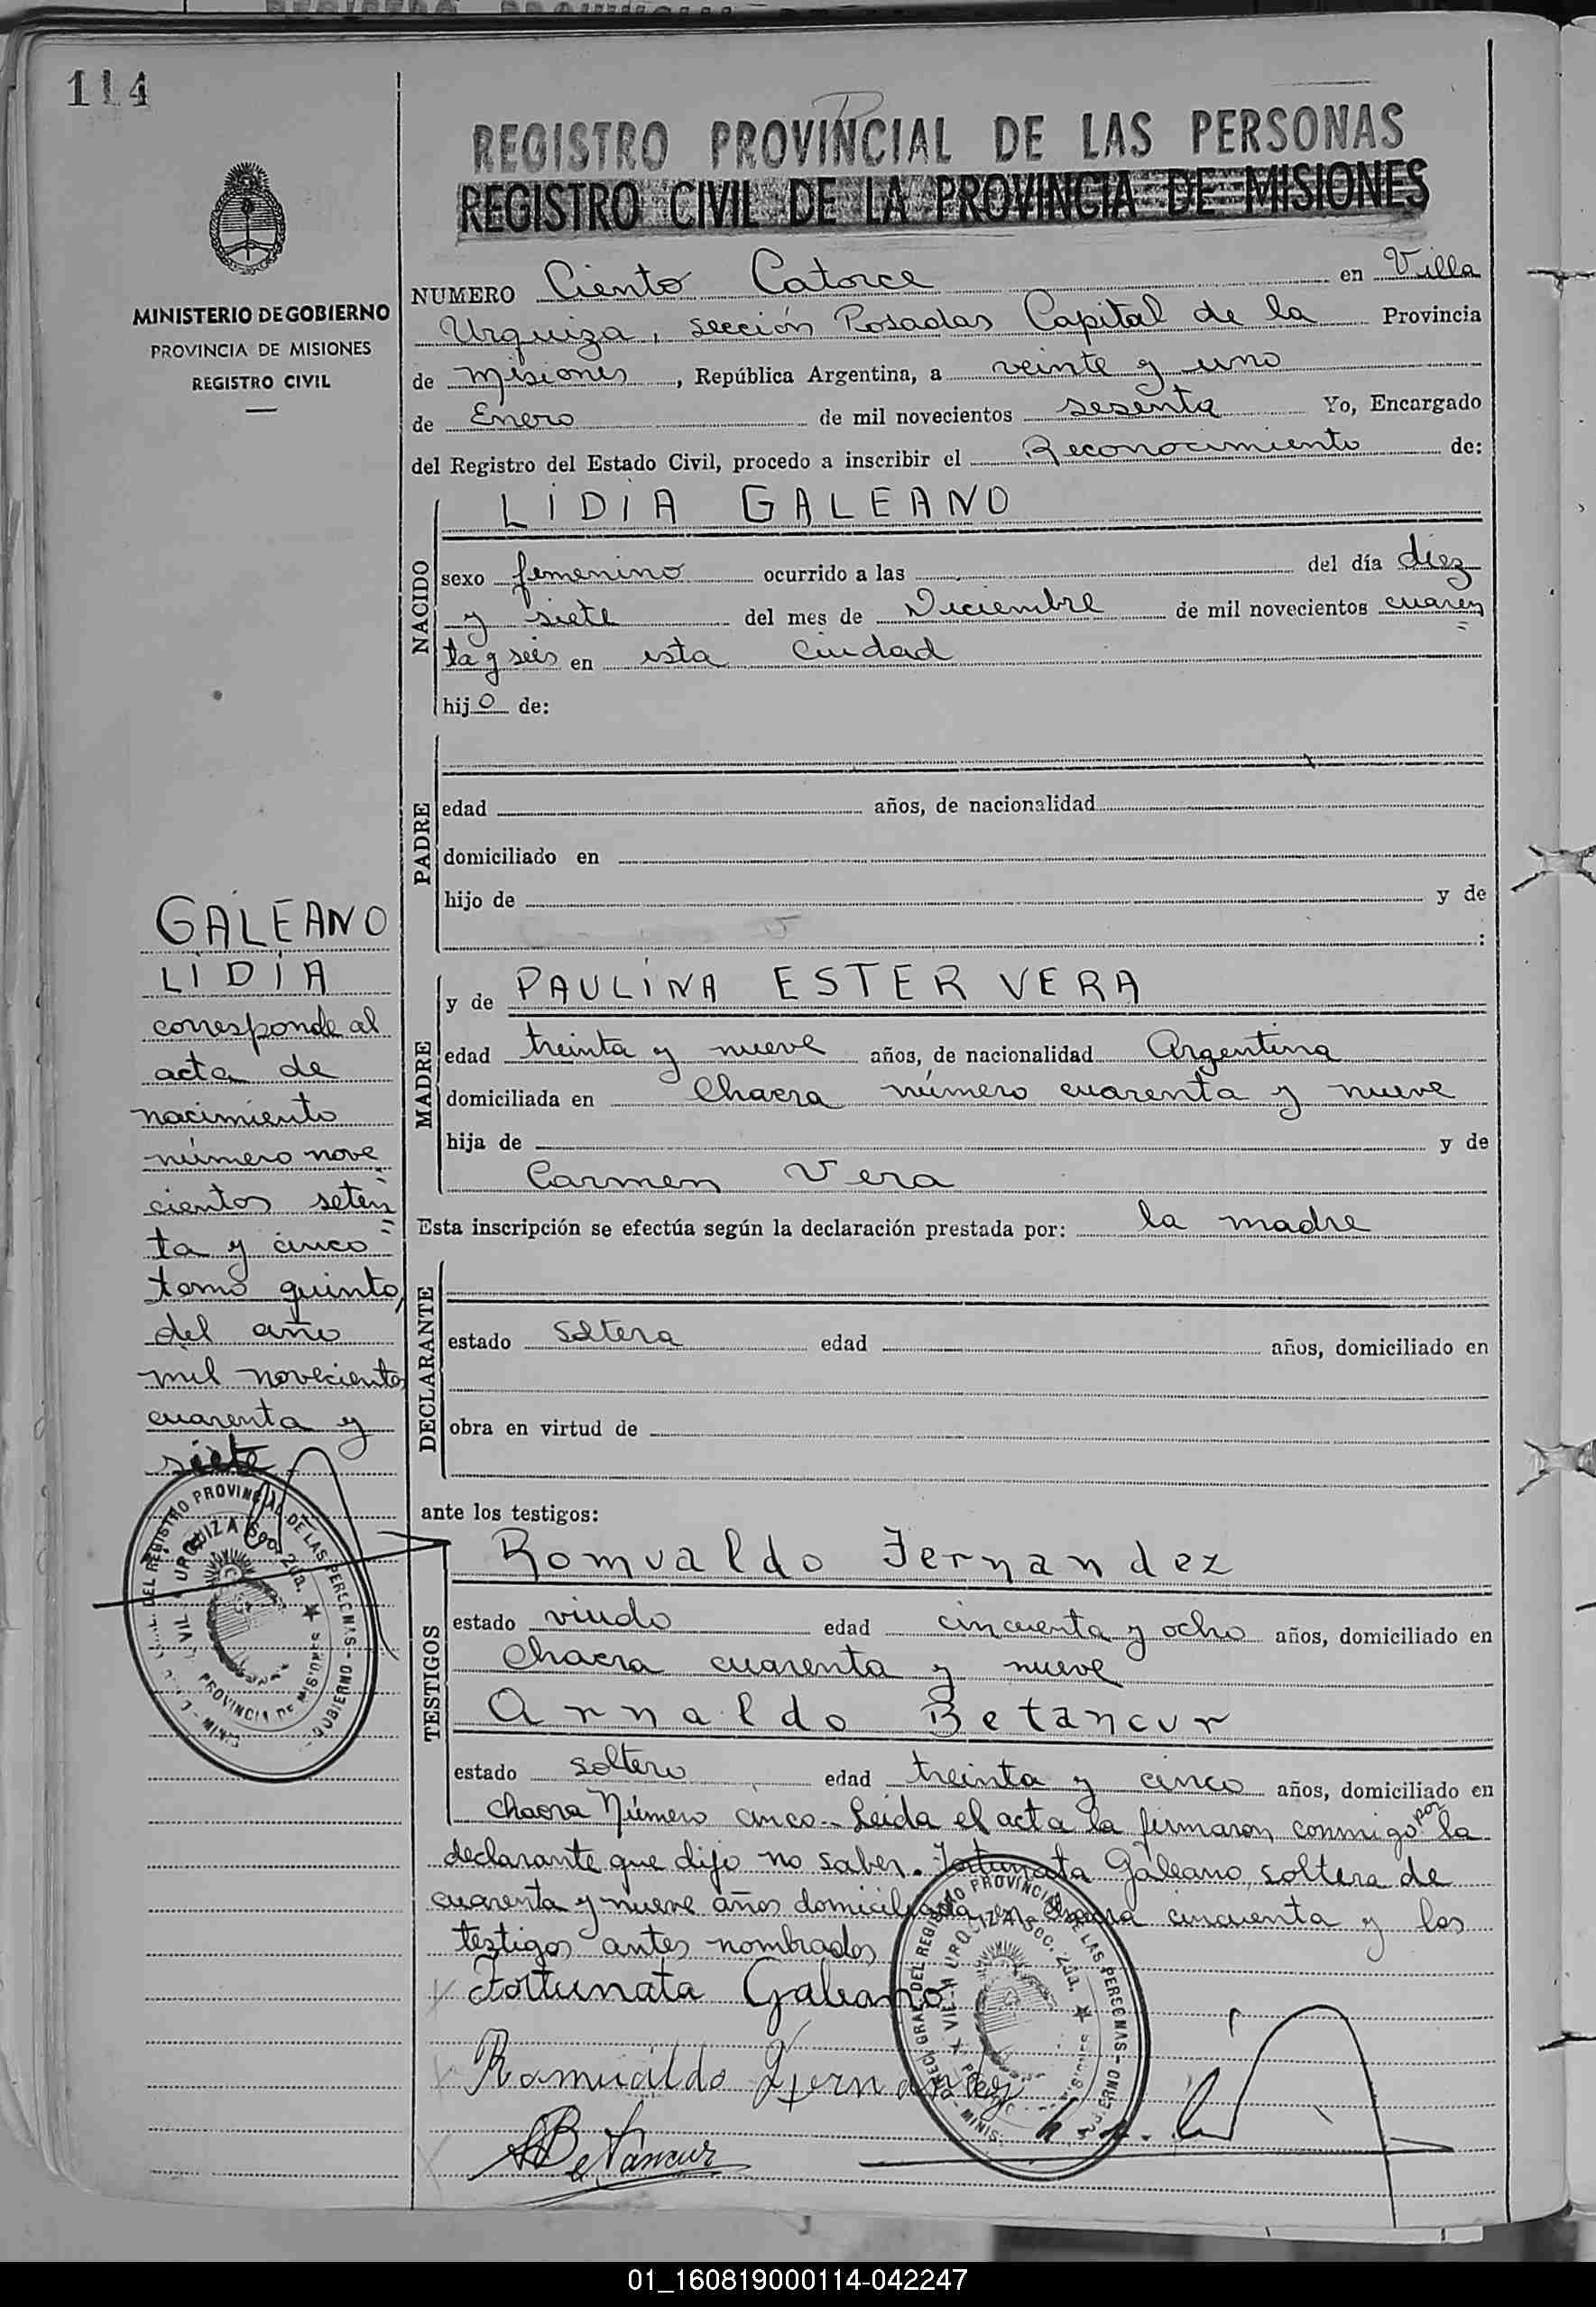 114
REGISTRO PROVINCIAL DE LAS PERSONAS
REGISTRO CIVIL DE LA PROVINCIA DE MISIONES
MINISTERIO DE GOBIERNO
PROVINCIA DE MISIONES
REGISTRO CIVIL
NUMERO Ciento Catorce en Villa
Urquiza, sección Posadas Capital de la Provincia
de Misiones, República Argentina, a veinte y uno
de Enero de mil novecientos sesenta Yo, Encargado
del Registro del Estado Civil, procedo a inscribir el Reconocimiento de:
NACIDO
LIDIA GALEANO
sexo femenino ocurrido a las del día diez
y siete del mes de Diciembre de mil novecientos cuaren
ta y seis en esta Ciudad
hijo de:
PADRE
edad años, de nacionalidad
domiciliado en
hijo de y de
:
MADRE
y de PAULINA ESTER VERA
edad treinta y nueve años, de nacionalidad Argentina
domiciliada en Chacra número cuarenta y nueve
hija de y de
Carmen Vera
Esta inscripción se efectúa según la declaración prestada por: la madre
DECLARANTE
estado soltera edad años, domiciliado en
obra en virtud de
ante los testigos:
TESTIGOS
Romualdo Fernandez
estado viudo edad cincuenta y ocho años, domiciliado en
Chacra cuarenta y nueve
Arnaldo Betancur
estado soltero edad treinta y cinco años, domiciliado en
chacra Número cinco.- Leida el acta la firmaron conmigo por la
declarante que dijo no saber. Fortunata Galeano, soltera de
cuarenta y nueve años domiciliada en Chacra cincuenta y los
testigos antes nombrados
Fortunata Galeano
Romualdo Fernandez
ABetancur
GALEANO
LIDIA
corresponde al
acta de
nacimiento
número nove
cientos seten
ta y cinco
tomo quinto,
del año
mil novecientos
cuarenta y
siete
DEL REGISTRO PROVINCIAL DE LAS PERSONAS - GOBIERNO - MINIS
VILLA URQUIZA Sec. 2da. ★ PROVINCIA DE MISIONES
DIREC. GRAL. DEL REGISTRO PROVINCIAL DE LAS PERSONAS - GOBIERNO - MINIS.
VILLA URQUIZA Sec. 2da. ★
01_160819000114-042247